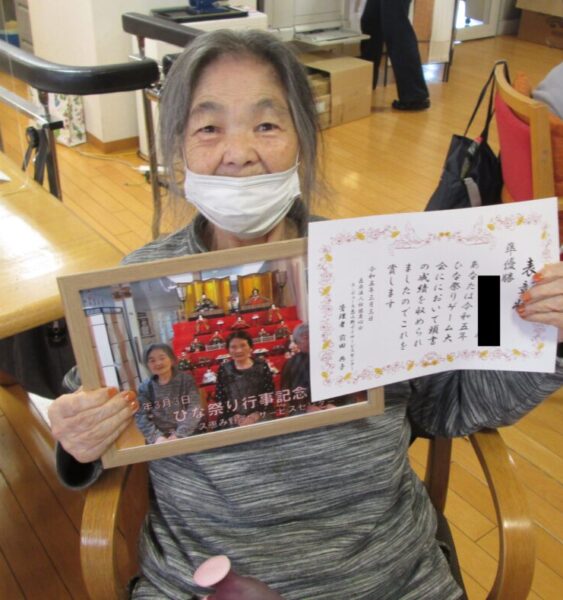 表彰状
準優勝
あなたは令和五年
ひな祭りゲーム大
会ににおいて頭書
の成績を収められ
ましたのでこれを
賞します
令和五年三月三日
管理者 前田
年3月3日
ひな祭り行事記念